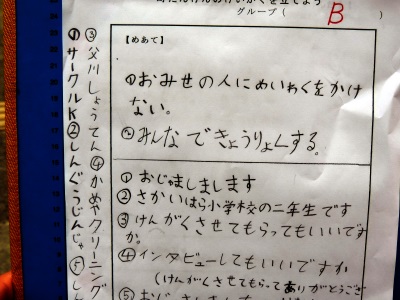 グループ( B
【めあて】
①おみせの人にめいわくをかけ
ない。
②みんなできょうりょくする。
①おじゃまします
②さかいはら小学校の二年生です
③けんがくさせてもらってもいいです
か。
④インタビューしてもいいですか
(けんがくさせてもらってありがとうござ
⑤
③父川しょうてん④かめやクリーニング
①サークルK②しんぐうじんじゃ⑤しん